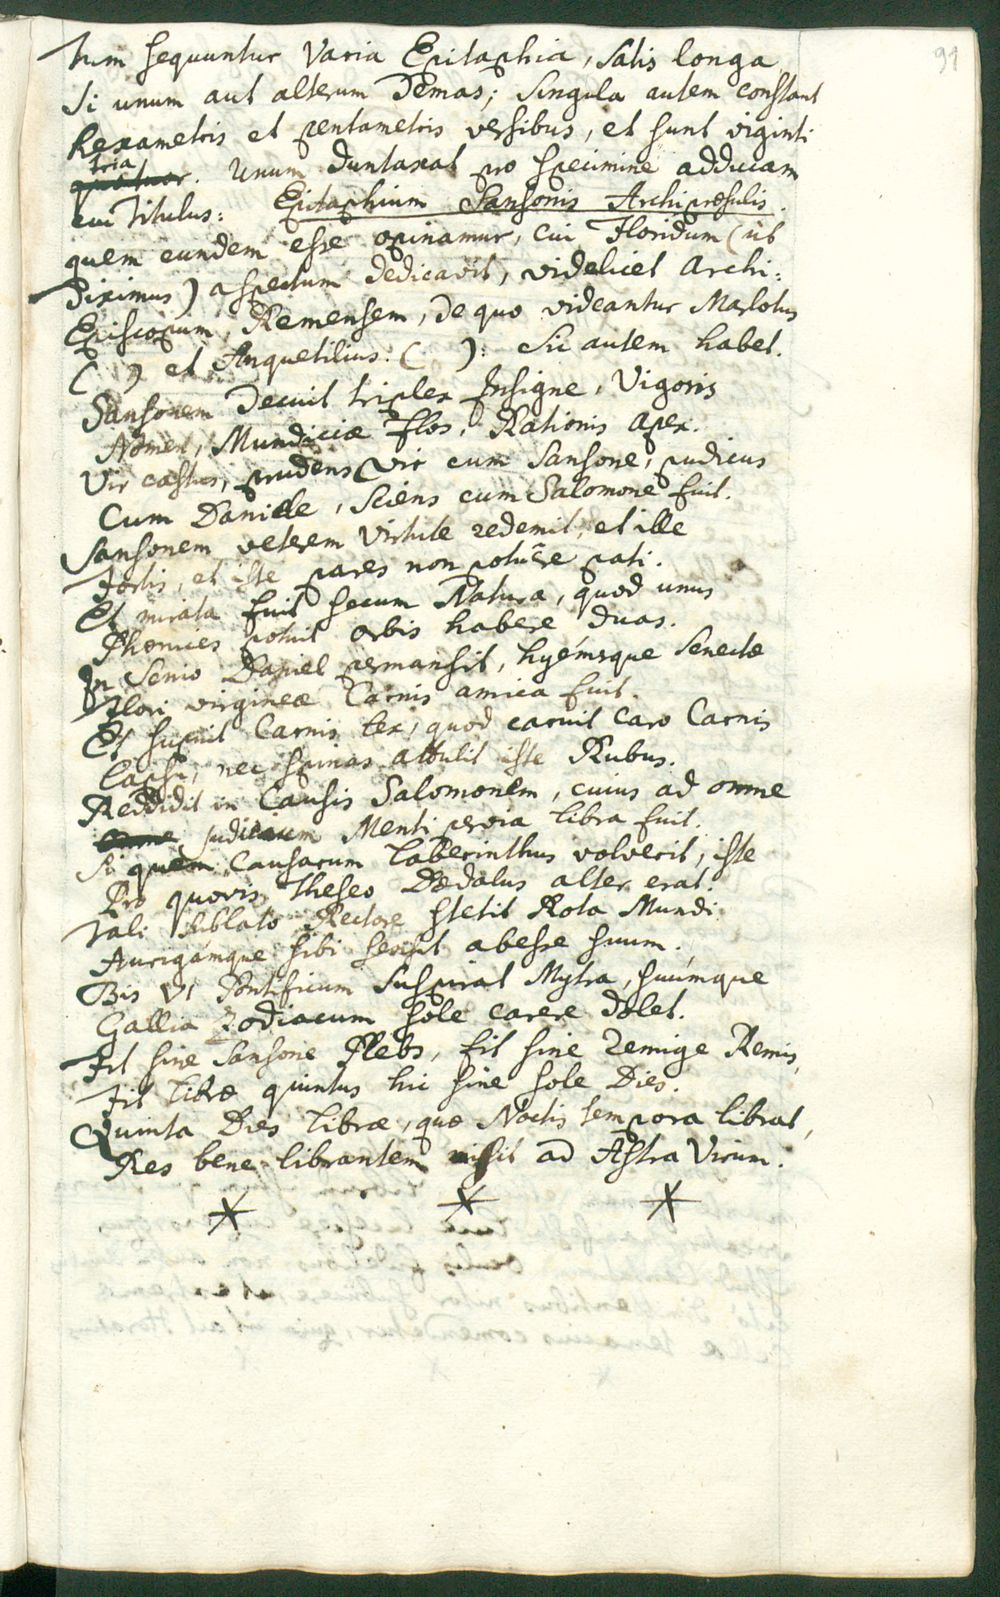 91
Tum sequuntur Varia Epitaphia, satis longa,
si unum aut alterum Demas; singula autem constant
hexametris et pentametris versibus, et sunt viginti
tria
quatuor. Unum duntaxat pro specimine adducam
cui Titulus: Epitaphium Sansonis Archipræsulis.
quem eundem esse opinamur, cui Floridum (ut
Diximus) aspectum dedicavit, videlicet Archi:
Episcopum Remensem, de quo videantur Marlotus
( ) et Anquetilius. ( ): Sic autem habet.
Sansonem Decuit triplex Insigne, Vigoris
Nomen, Mundiciæ Flos, Rationis apex.
Vir castus, prudens vir cum Sansone, pudicus
Cum Daniele, Sciens cum Salomone fuit.
Sansonem veterem Virtute redemit, et ille
Fortis, et iste pares non potuêre pati.
Et mirata fuit secum Natura, quod unus
Phœnices potuit orbis habere duas.
In Senio Daniel permansit, hyémsque Senectæ
Flori virgineæ Carnis amica fuit.
Et stupuit Carnis lex, quod caruit Caro Carnis
Lapsu, nec spinas attulit iste Rubus.
Reddidit in Causis Salomonem, cuius ad omne
omne Judicium Menti pervia libra fuit.
Si quem Causarum Laberinthus volverit, iste
Pro quovis Theseo Dædalus alter erat.
Tali sublato Rectore stetit Rota Mundi
Aurigámque sibi sensit abesse suum.
Bis VI Pontificum Suspirat Mytra, suúmque
Gallia Zodiacum sole carere dolet.
Fit sine Sansone Plebs, fit sine remige Remis,
Fit Libræ quintus hic sine sole Dies.
Quinta Dies Libræ, quæ Noctis tempora librat,
Res bene librantem misit ad Astra Virum.